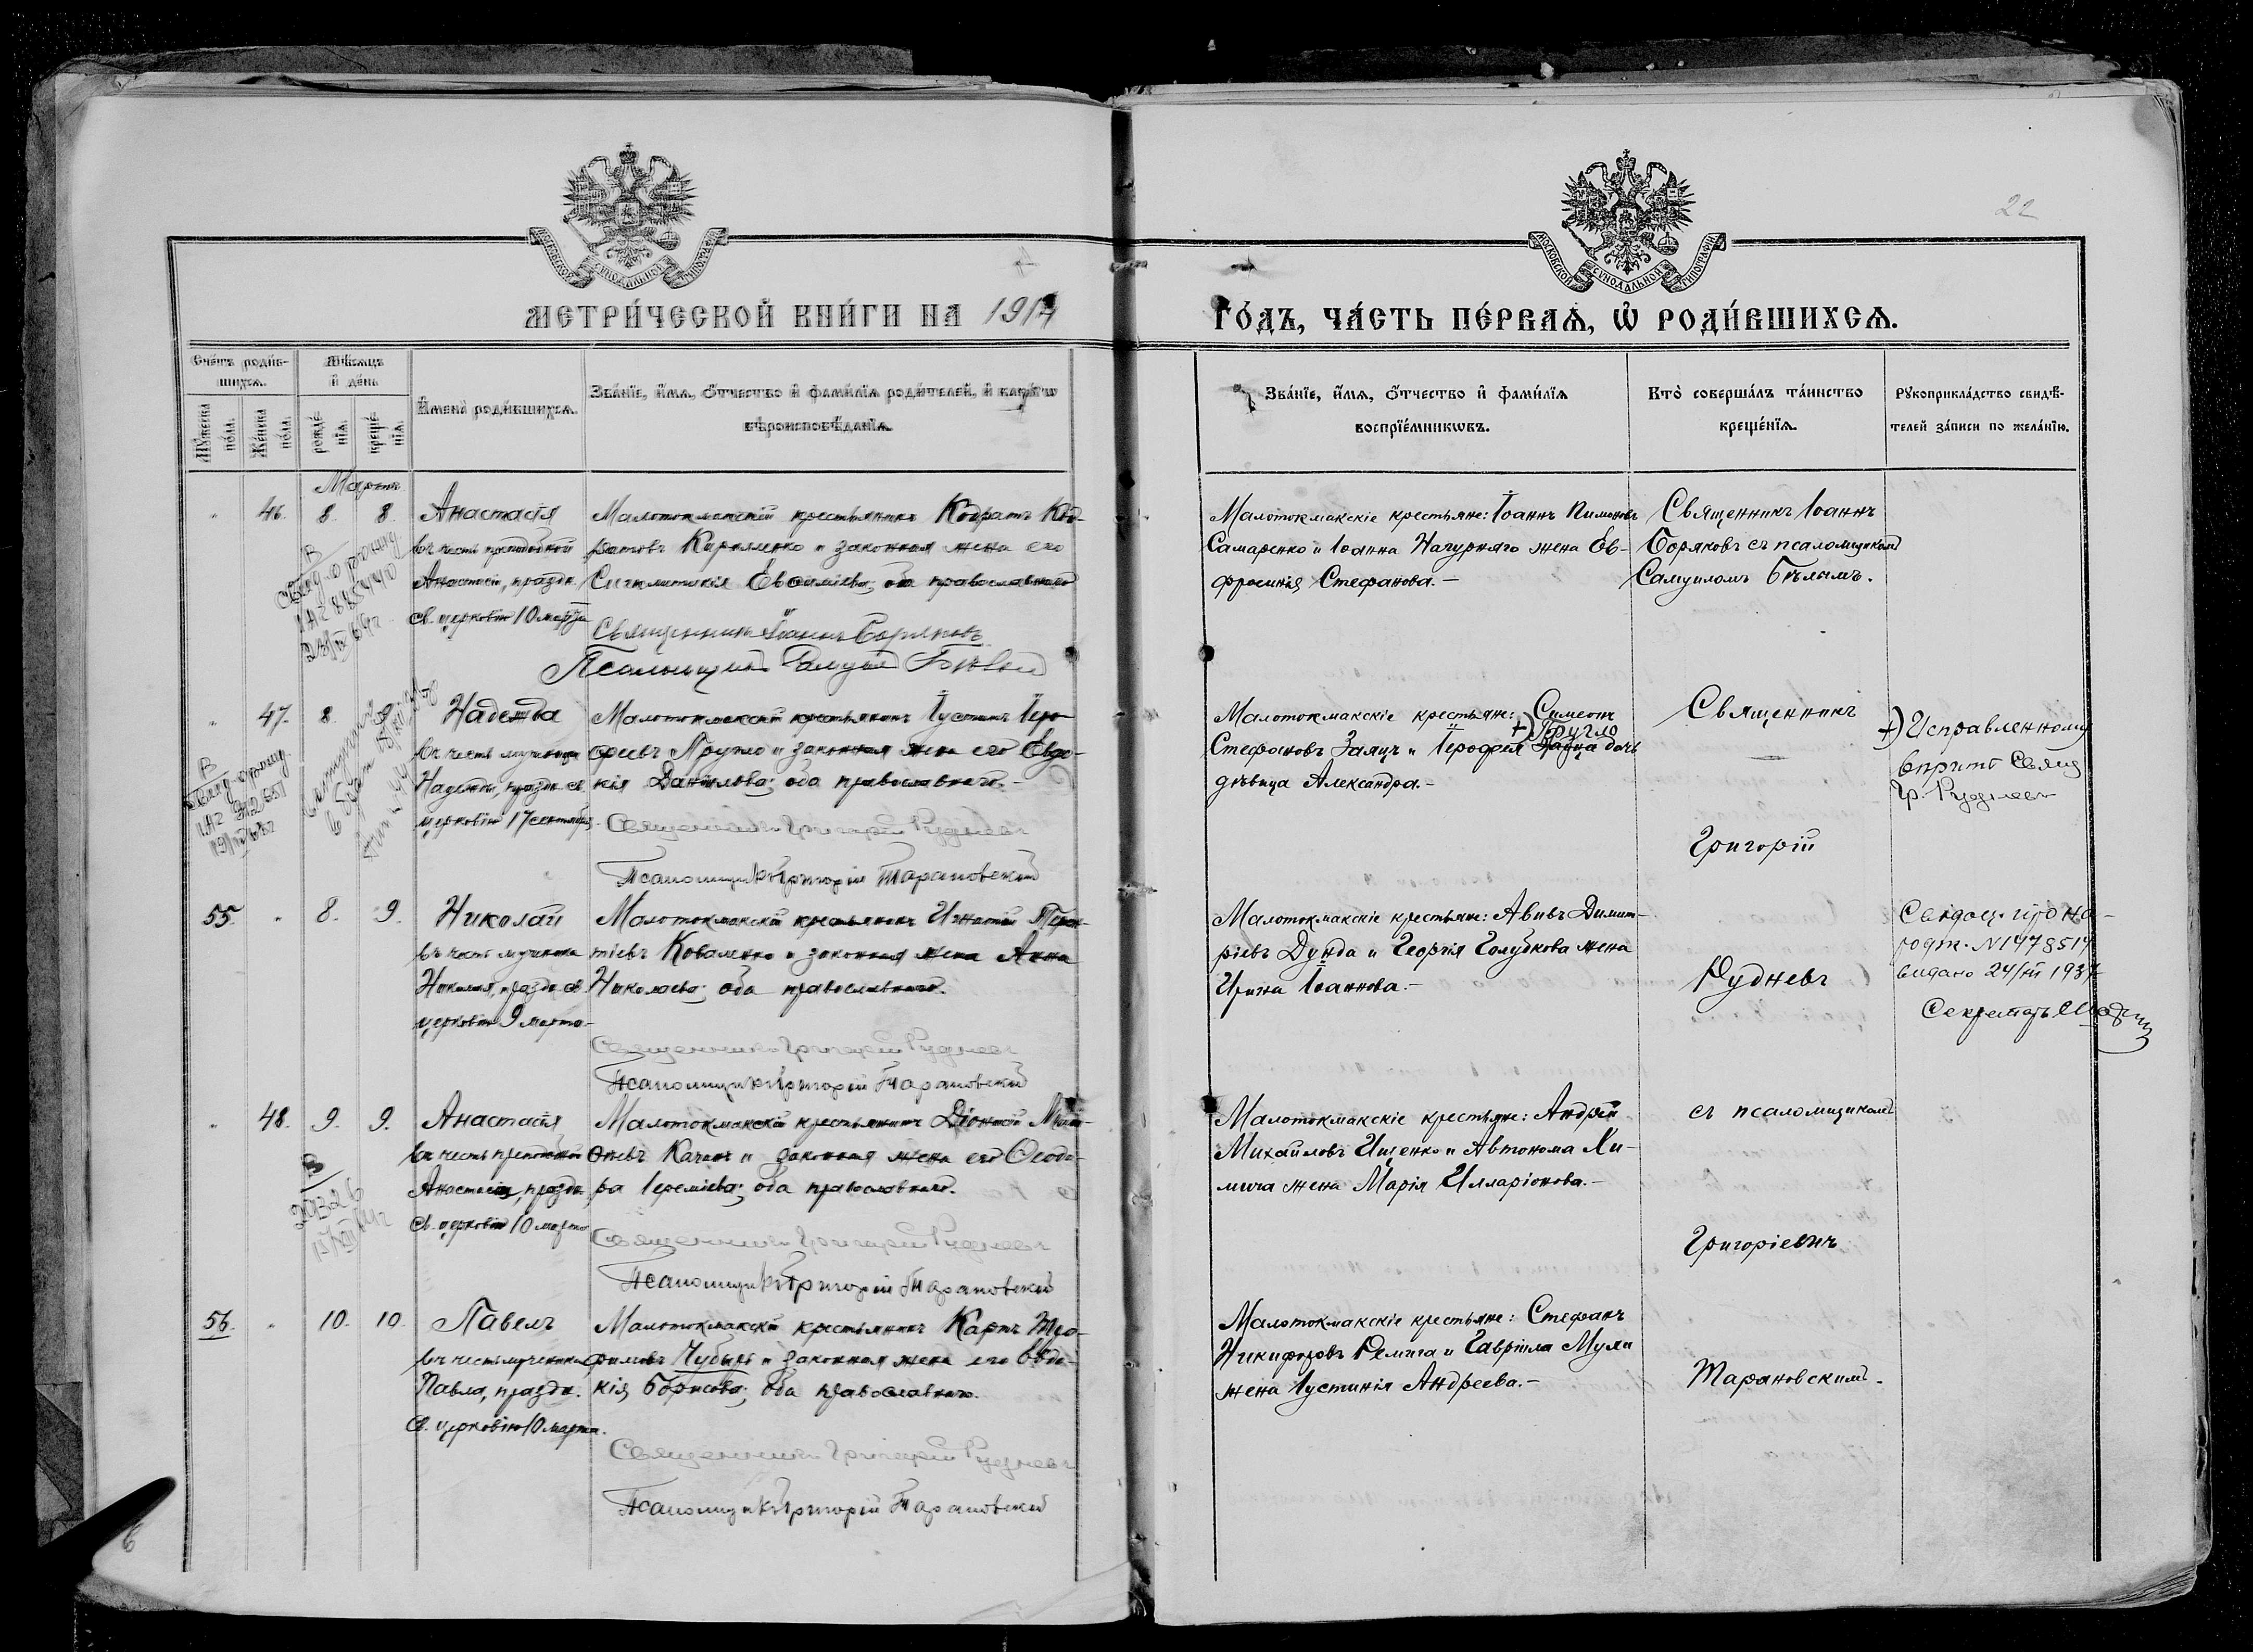 22
МОСКОВСКОЙ СѴНОДАЛЬНОЙ ТИПОГРАФІИ
МОСКОВСКОЙ СѴНОДАЛЬНОЙ ТИПОГРАФІИ
МЕТРИ́ЧЕСКОЙ КНИ́ГИ НА 1914
ГО́ДЪ, ЧА́СТЬ ПЕ́РВАѦ, Ѡ РОДИ́ВШИХСѦ.
Сче́тъ роди́в-
шихсѧ.
Мꙋ́жеска по́ла.
Же́нска по́ла.
Мѣ́сѧцъ
и҆ де́нь
рожде́нїѧ.
креще́нїѧ.
И҆мена̀ роди́вшихсѧ.
Зва́нїе, и҆́мѧ, ѻ҆́тчество и҆ фами́лїѧ роди́телей, и҆ како́гѡ
вѣроисповѣ́данїѧ.
Зва́нїе, и҆́мѧ, ѻ҆́тчество и҆ фами́лїѧ
воспрїе́мникѡвъ.
Кто̀ соверша́лъ та́инство
креще́нїѧ.
Рꙋкоприкла́дство свидѣ́-
телей за́писи по жела́нїю.
Мартъ
46. 8. 8. Анастасія
въ честь преподобной
Анастасіи, праздн.
св. церковію 10 марта
Малотокмакскій крестьянинъ Кодратъ Код-
ратовъ Кириленко и законная жена его
Сигклитикія Евѳиміева; оба православнаго
Священникъ Іоаннъ Боряковъ
Псаломщикъ Самуилъ Бѣлый
Малотокмакскіе крестьяне: Іоаннъ Пимоновъ
Самаренко и Іоанна Нагурняго жена Ев-
фросинія Стефанова.-
Священникъ Іоаннъ
Боряковъ съ псаломщикомъ
Самуиломъ Бѣлымъ.
47. 8. 9. Надежда
въ честь мученицы
Надежды, праздн. св.
церковію 17 сентября.
Малотокмакскій крестьянинъ Іустинъ Іеро-
ѳеевъ Пругло и законная жена его Евдо-
кія Данилова; оба православнаго.-
Священникъ Григорій Рудневъ
Псаломщикъ Григорій Тарановскій
Малотокмакскіе крестьяне: Симеонъ
+) Пругло
Стефановъ Заяцъ и Іероѳея Зайца дочь
дѣвица Александра.-
Священникъ
+) Исправленному
вѣрить Свящ
Гр. Рудневъ
Григорій
55. 8. 9. Николай
въ честь мученика
Николая, праздн. св.
церковію 9 марта-
Малотокмакскій крестьянинъ Игнатій Терен-
тіевъ Коваленко и законная жена Анна
Николаева; оба православнаго.
Священникъ Григорій Рудневъ
Псаломщикъ Григорій Тарановскій
Малотокмакскіе крестьяне: Авивъ Димит-
ріевъ Дунда и Георгія Голубкова жена
Ирина Іоаннова.-
Рудневъ
Свідоц. про на-
родж. N 1478514
видано 24/III 1937
Секретарь
48. 9. 9. Анастасія
въ честь преподобной
Анастасіи, праздн.
св. церковію 10 марта
Малотокмакскій крестьянинъ Діонисій
Качанъ и законная жена его Ѳеодо-
ра Іереміева; оба православнаго.
Священникъ Григорій Рудневъ
Псаломщикъ Григорій Тарановскій
Малотокмакскіе крестьяне: Андрей
Михайловъ Ищенко и Автонома Хи-
мича жена Марія Илларіонова.-
съ псаломщикомъ
Григоріемъ
56. 10. 10. Павелъ
въ честь мученика
Павла, праздн.
св. церковію 10 марта.
Малотокмакскій крестьянинъ Карпъ Тро-
фимовъ Чубырь и законная жена его Евдо-
кія Борисова; оба православнаго.
Священникъ Григорій Рудневъ
Псаломщикъ Григорій Тарановскій
Малотокмакскіе крестьяне: Стефанъ
Никифоровъ Ремига и Гавріила Мули
жена Іустинія Андреева.-
Тарановскимъ.